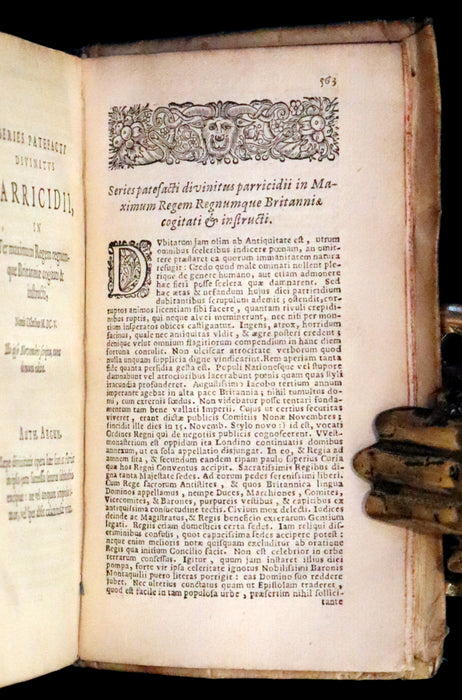 SERIES PATEFACTI
DIVINITUS
PARRICIDII,
IN
Ter maximum Regem regnum-
que Britanniæ cogitati &
instructi,
AUTH. ARGUM.
563
Series patefacti divinitus parricidii in Ma-
ximum Regem Regnumque Britanniæ
cogitati & instructi.
DUbitatum jam olim ab Antiquitate est, utrum
omnibus sceleribus indicere pœnam, an omit-
tere præstaret ea quorum immanitatem natura
refugit: Credo quod male ominari nollent ple-
rique de genere humano, aut etiam admonere
hæc fieri posse scelera quæ damnarent. Sed
hæc ætas & nefandum hujus diei parricidium
dubitantibus scrupulum ademit; ostendit, cor-
ruptos animos licentiam sibi facere, quantam rivuli crepidi-
nibus ruptis, qui neque alvei meminerunt, nec niti per mon-
tium insperatos obices castigantur. Ingens, atrox, horridum
facinus, quale nec antiquitas vidit, & ægre posteri credent;
denique velut omnium flagitiorum compendium in hanc diem
fortuna contulit. Non ulciscar atrocitate verborum quod
nulla unquam supplicia digne vindicarint. Rem aperiam tanta
fide quanta perfidia gesta est. Populi Nationesque vel stupore
damnabunt vel atrocioribus lacerabunt pœnis quam quas styli
iracundia profunderet. Augustissimi Jacobo tertium annum
imperante agebat in alta pace Britannia; nihil tumultos do-
mi, cum externis fœdus. Non videbatur posse tentari funda-
mentum tam bene vallati Imperii. Cujus ut certius securitas
viveret, erant dictæ publicis Comitiis Nonæ Novembres;
incidit ille dies in 15. Novemb. Stylo novo :) id est, vocati
Ordines Regni qui de negotiis publicis cognoscerent. Vvest-
monasterium est oppidum ita Londino continuatis domibus
annexum, ut ea sola appellatio disjungat. In eo, & Regia ad
amnem est, & secundum eandem ripam paulo superius Curia
qua hos Regni Conventus accipit. Sacratissimis Regibus di-
gna tanta Majestate sedes. Ad eorum pedes serenissimi liberi.
Cum Rege sacrorum Antistites, & quos Britannica lingua
Dominos appellamus, nempe Duces, Marchiones, Comites,
Vicecomites, & Barones, purpureis vestibus, & capitibus ex
antiquissima consuetudine tectis. Civium mox delecti. Iudices
deinde ac Magistratus, & Regis beneficio exterarum Gentium
legati. Regiis etiam domesticis certa sedes. Iam reliqui di-
scriminibus consulis, quot capacissima sedes accipere potest:
neque enim melioris notæ quisquam excluditur ab oratione
Regis qua initium Concilio facit. Non est celebrior in orbe
terrarum consessus. Igitur, quum jam instaret illius diei
pompa, forte vir ipsa celeritate ignotus Nobilissimi Baronis
Montaquilii puero literas porrigit: eas Domino suo reddere
jubet. Nec ulterius cunctatus quam ut Epistolam traderet,
quod est facile in tam populosa urbe, præsertim nihil sollici-
tante